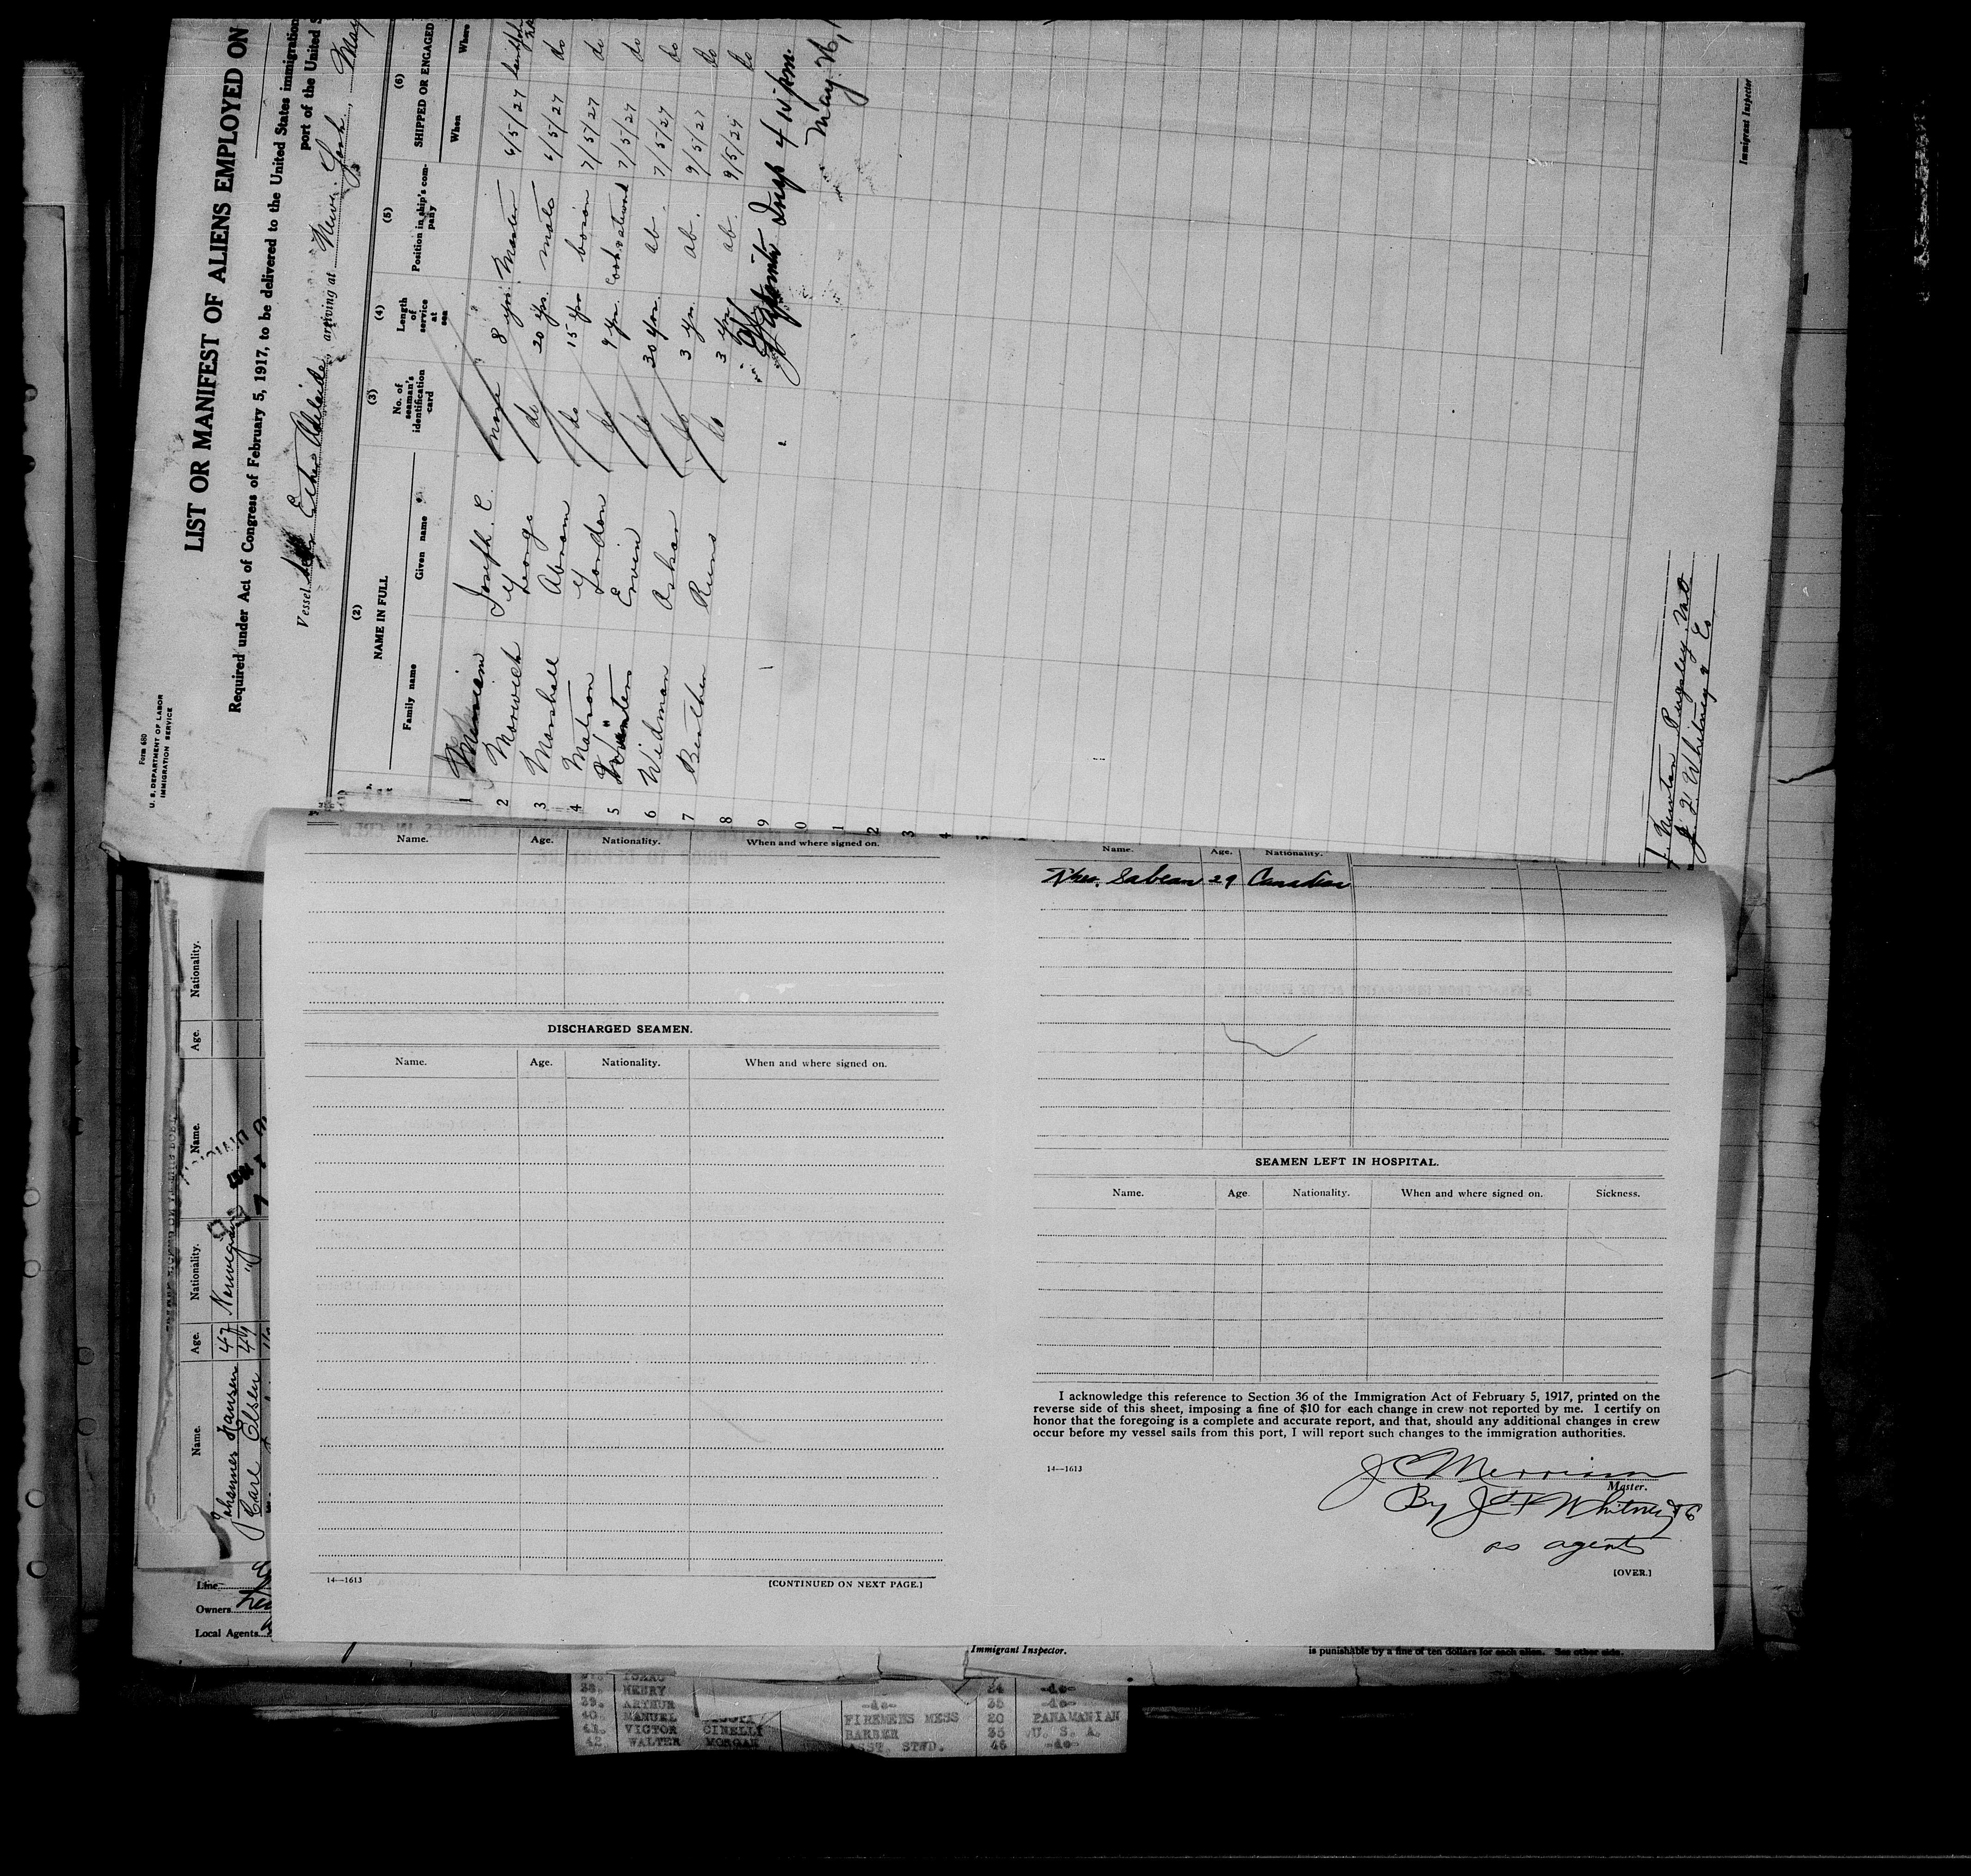 Form 680
U. S. DEPARTMENT OF LABOR
IMMIGRATION SERVICE
LIST OR MANIFEST OF ALIENS EMPLOYED ON
Required under Act of Congress of February 5, 1917, to be delivered to the United States immigration
port of the United S
Vessel Esther Adelaide, arriving at New York, May
(1) (2) (3) (4) (5) (6)
NAME IN FULL
Family name Given name
No. of seaman's identification card
Length of service at sea
Position in ship's company
SHIPPED OR ENGAGED
When Where
1 Merriam Joseph. C. none 8 yrs. Master 6/5/27
2 Maxwell George do 20 yrs. mate 6/5/27 do
3 Marshall Abram do 15 yrs bosun 7/5/27 do
4 Matson Gordon do 9 yrs. Cook & steward 7/5/27 do
5 Winters Ervin do 30 yrs. ab. 7/5/27 do
6 Widman Askar do 3 yrs. ab. 9/5/27 do
7 Benthen Runs do 3 yrs ab. 9/5/27 do
8
9
0
1
2
3
4
Insp 4 15 pm.
May. 26, 1
J. Newton Pugsley
J. F. Whitney & Co
Immigrant Inspector
Name. Age. Nationality. When and where signed on.
DISCHARGED SEAMEN.
Name. Age. Nationality. When and where signed on.
14—1613
[CONTINUED ON NEXT PAGE.]
Name. Age. Nationality.
Thos. Sabean 29 Canadian
SEAMEN LEFT IN HOSPITAL.
Name. Age Nationality. When and where signed on. Sickness.
I acknowledge this reference to Section 36 of the Immigration Act of February 5, 1917, printed on the
reverse side of this sheet, imposing a fine of $10 for each change in crew not reported by me. I certify on
honor that the foregoing is a complete and accurate report, and that, should any additional changes in crew
occur before my vessel sails from this port, I will report such changes to the immigration authorities.
14—1613
J C Merriam
Master.
By J F Whitney & C
as agents
[OVER.]
Name. Age. Nationality. Name. Age. Nationality.
Johannes Hansen 47 Norwegian
Carl Olsen 49 "
Line
Owners
Local Agents
Immigrant Inspector.
is punishable by a fine of ten dollars for each alien. See other side.
38. HENRY 24 -do-
39. ARTHUR -do- 35 -do-
40. MANUEL FIREMENS MESS 20 PANAMANIAN
41. VICTOR CINELLI BARBER 35 U. S. A.
42. WALTER MORGAN ASST. STWD. 46 -do-